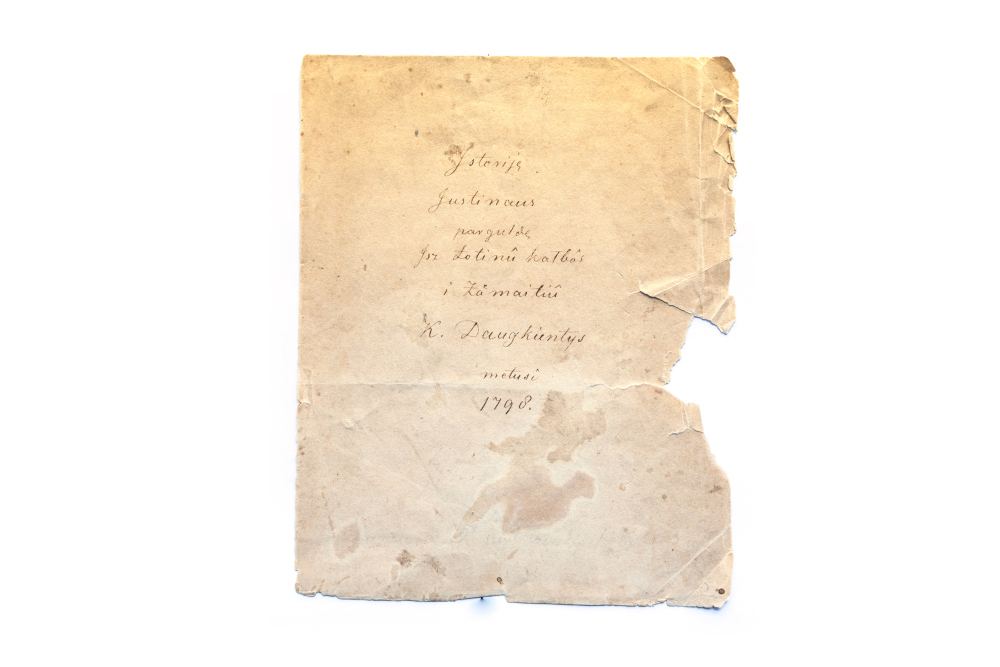 Istorije
Justinaus
pargulde
Isz Lotinû kalbôs
i Zâmaitiû
K. Daugkientys
metusi
1798.